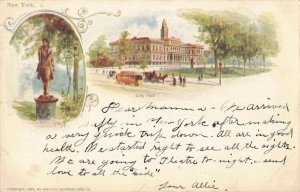 New York.
City Hall
Dear mamma - We arrived
in New York after making
a very quick trip down. All are in good
health. We started right to see all the sights.
We are going to Theatre to-night. send
love to all the "kids"
Your Allie.